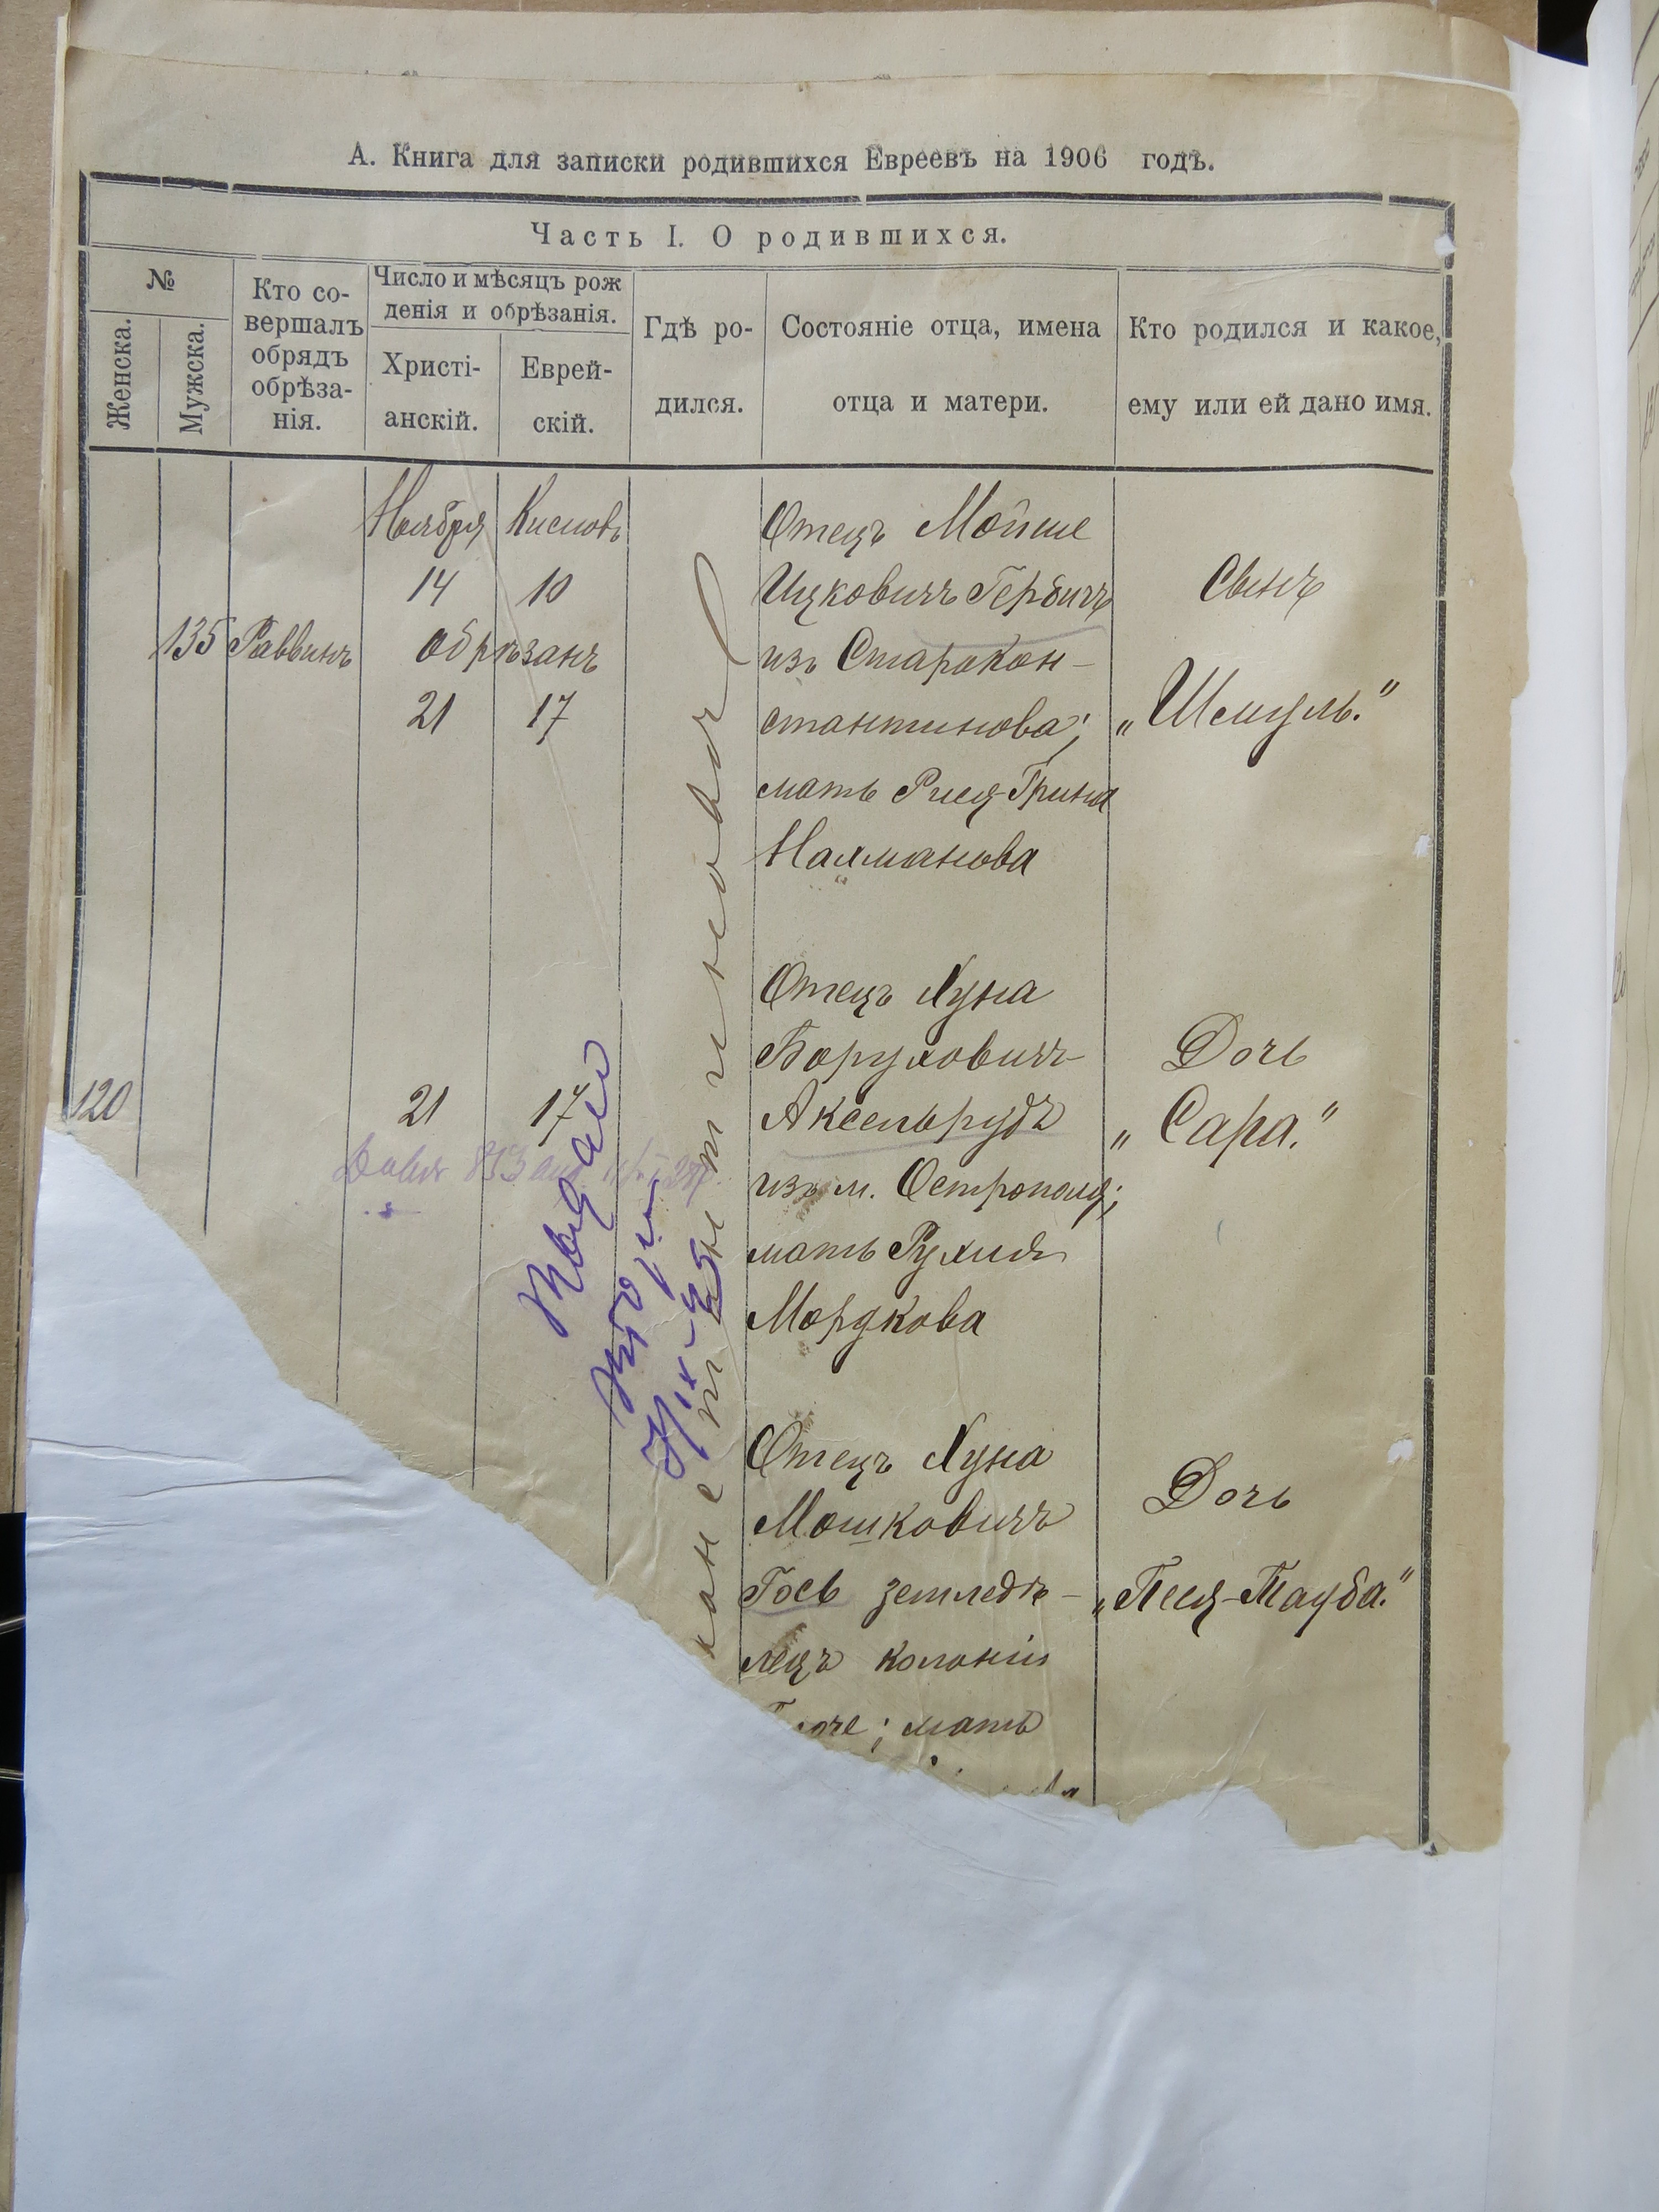 А. Книга для записки родившихся Евреевъ на 1906 годъ.
Часть I. О родившихся.
№
Женска.
Мужска.
Кто со-
вершалъ
обрядъ
обрѣза-
нія.
Число и мѣсяцъ рож
денія и обрѣзанія.
Христі-
анскій.
Еврей-
скій.
Гдѣ ро-
дился.
Состояніе отца, имена
отца и матери.
Кто родился и какое,
ему или ей дано имя.
135
Раввинъ
Ноября Кисловъ
14 10
Обрѣзанъ
21 17
Отецъ Мойше
Ицковичъ Гербичъ
изъ Старокон-
стантинова;
мать Рися-Грина
Нахманова
Сынъ
„Шмуль."
120
21 17
Отецъ Хуна
Боруховичъ
Аксельрудъ
изъ м. Острополя;
мать Рухля
Мордкова
Дочь
„Сара."
Отецъ Хуна
Мошковичъ
Гось земледѣ-
лецъ колоніи
мать
Дочь
„Песя-Тауба."